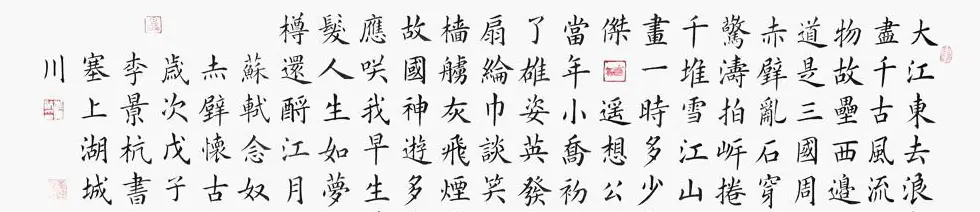 大江東去浪
盡千古風流
物故壘西邊
道是三國周
赤壁亂石穿
驚濤拍岸捲
千堆雪江山
畫一時多少
傑遥想公
當年小喬初
了雄姿英發
扇綸巾談笑
檣艣灰飛煙
故國神遊多
應咲我早生
髮人生如夢
樽還酹江月
蘇軾念奴
赤壁懷古
歲次戊子
李景杭書
塞上湖城
川